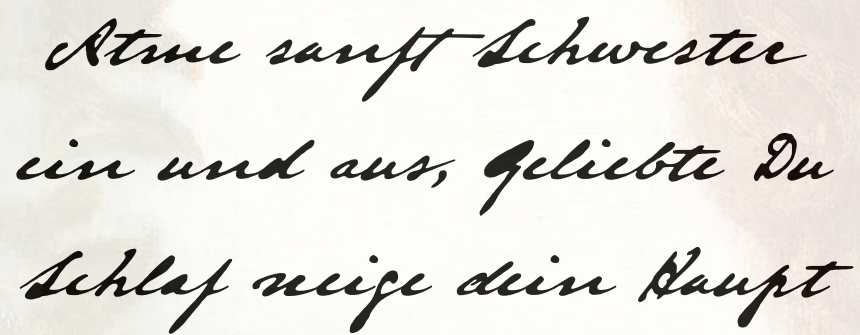 Atme sanft Schwester
ein und aus, Geliebte Du
Schlaf neige dein Haupt